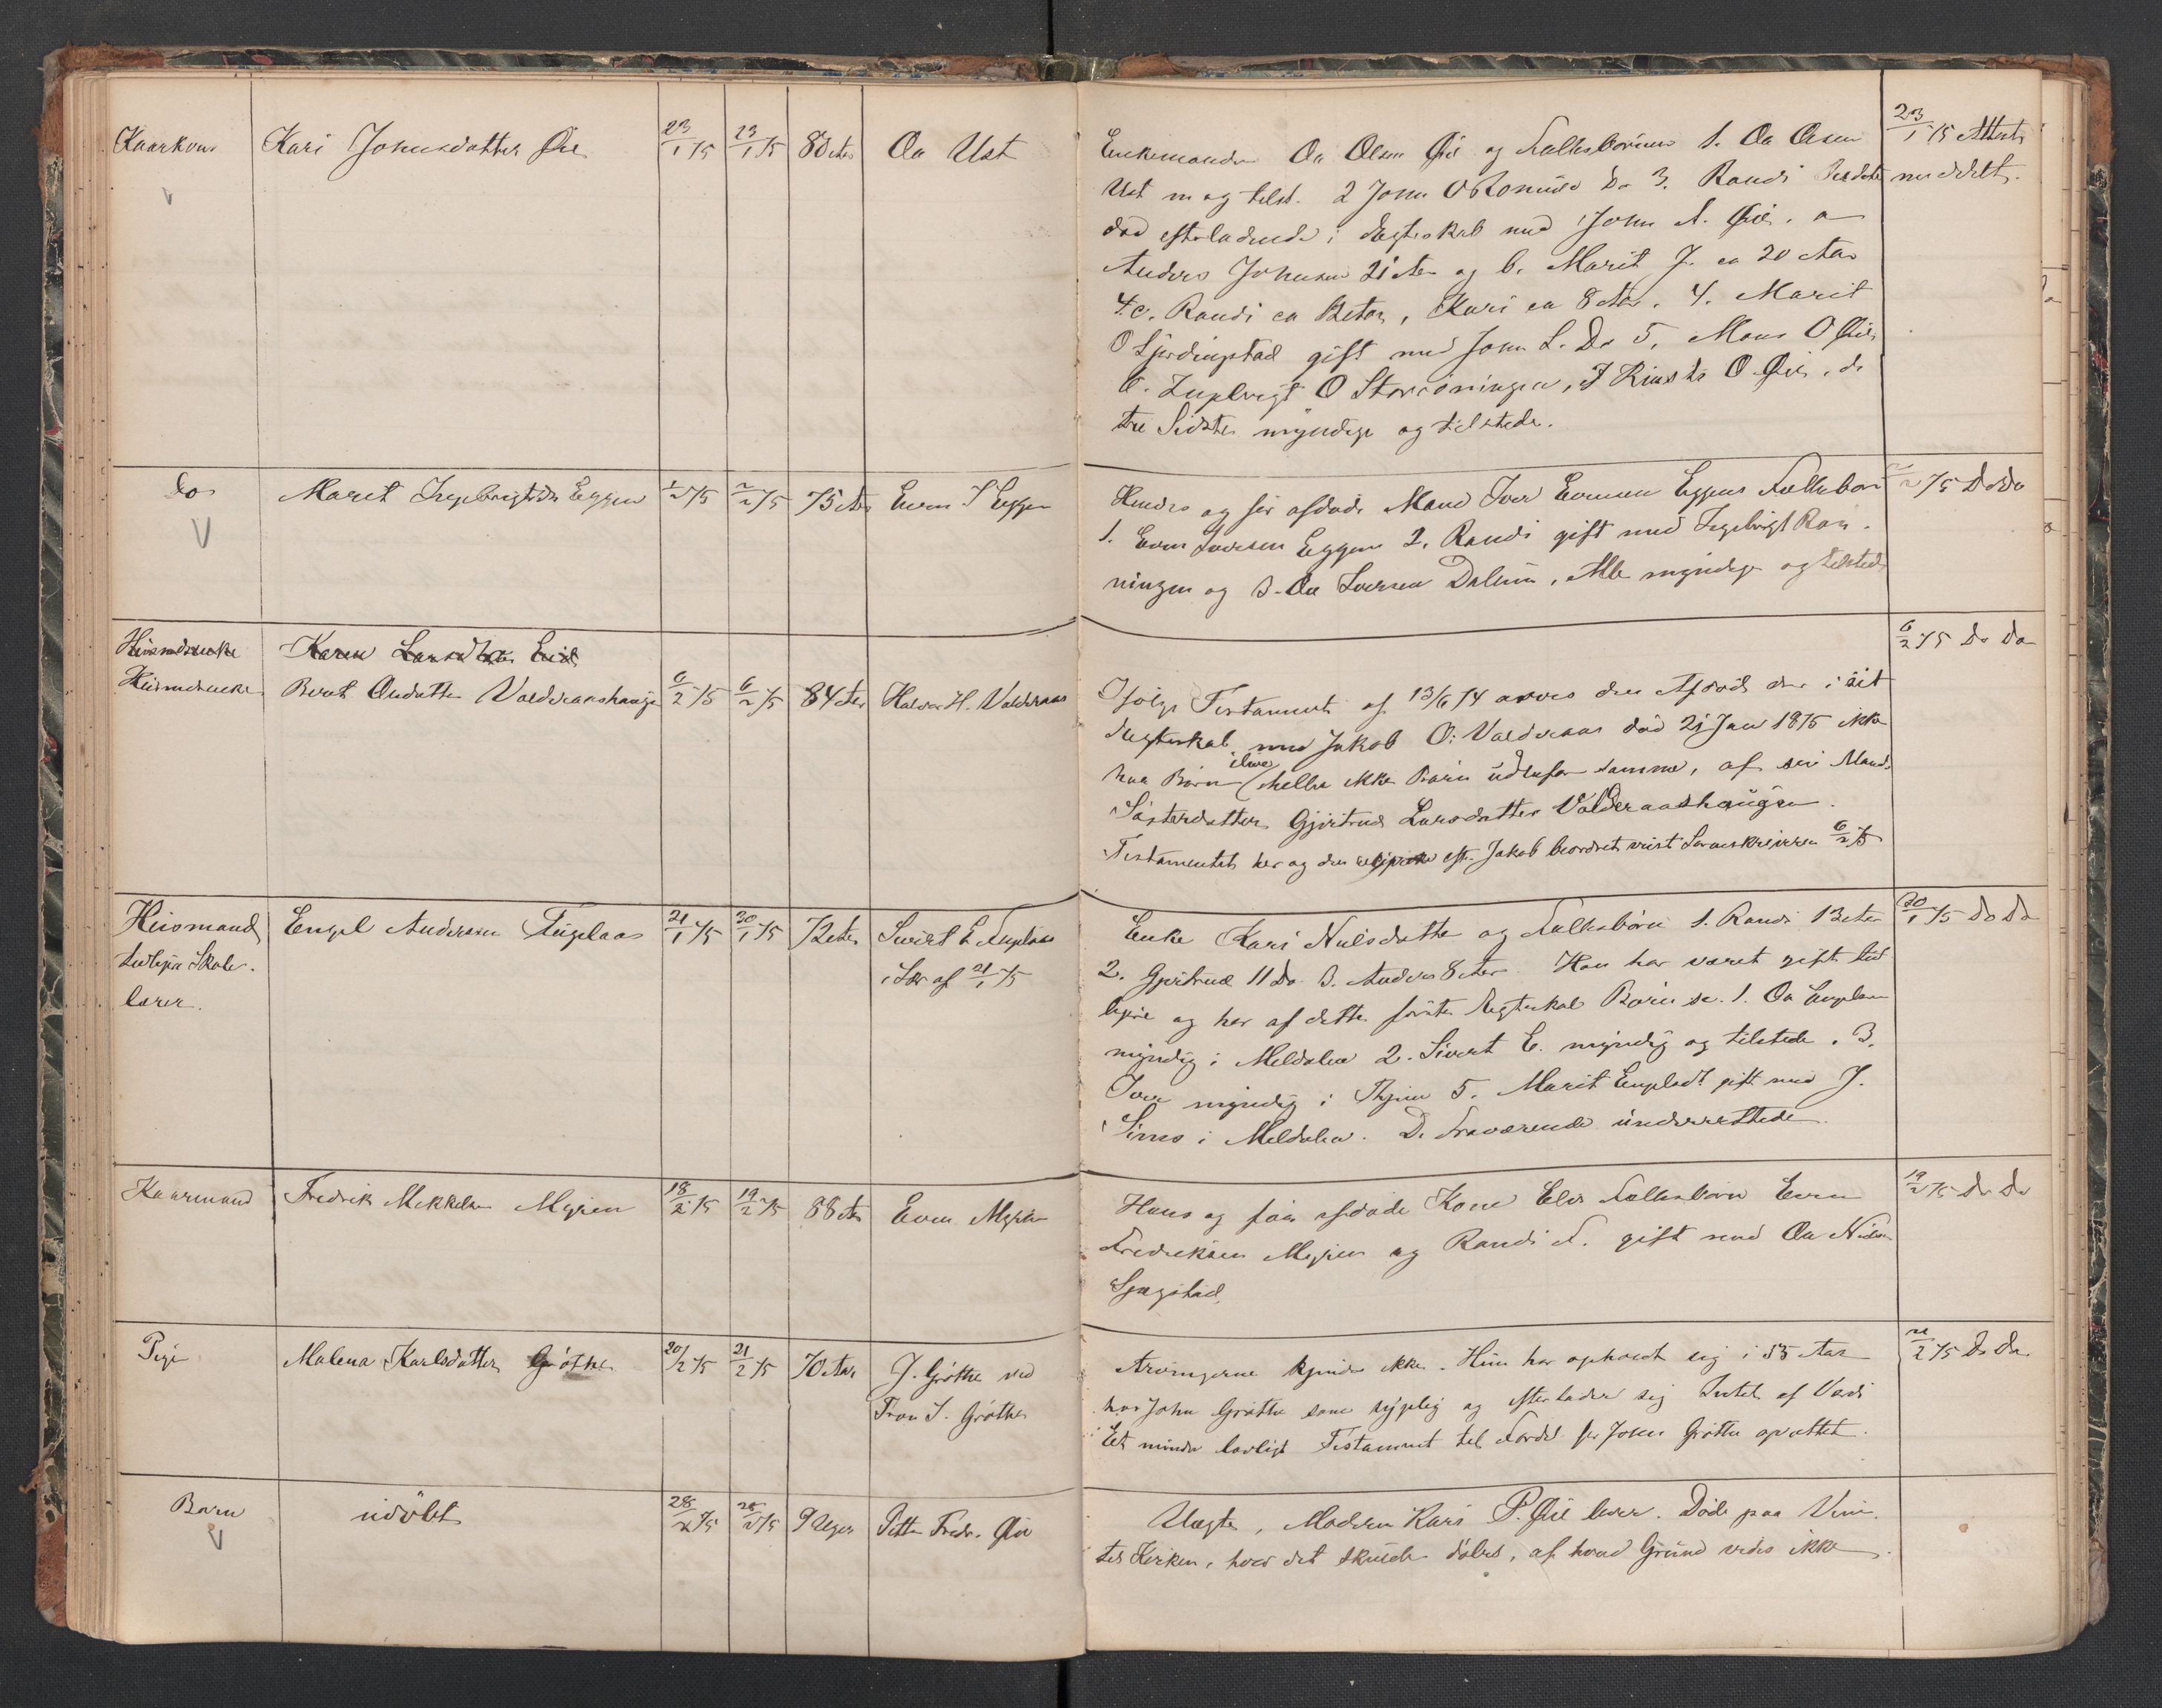 Kaarkone
Kari Johnsdatter Øie
23/1 75
23/1 75
80 Aar
Ola Ust
Enkemanden Ola Olsen Øie og Fællesbørnene 1. Ola Olsen
Ust m og tilst. 2 John O Do 3. Randi
død efterladende i Ægteskab med John A. Øie. a
Anders Johnsen 21 Aar og b. Marit J. ca 20 Aar
c. Randi ca Aar, Kari ca 8 Aar. 4. Marit
O gift med John L. Do 5. Mons O Øie
6. Ingebrigt O Storrönningen, 7 O Øie, de
tre Sidste myndige og tilstede.
23/1 75 Attest
meddelt.
Do
Marit Ingebrigtsdtr Eggen
1/2 75
2/2 75
75 Aar
Even I Eggen
Hendes og før afdøde Mand Iver Evensen Eggens Fællesbørn
1. Even Iversen Eggen 2. Randi gift med Ingebrigt Røn-
ningen og 3. Ola Iversen Dalum, Alle myndige og tilstede
2/2 75 Do Do
Huusmdsenke
Karen Larsdtter
Huusmdsenke
Berit Olsdatter Valdraashaugen
6/2 75
6/2 75
84 Aar
Halvor H. Valdraas
Ifølge Testament af 13/6 74 arves den Afdøde der i sit
Ægteskab med Jakob O. Valdraas død 21 Jan 1875 ikke
har Børn ilive heller ikke Børn udenfor samme, af sin Mands
Søsterdatter Gjertrud Larsdatter Valderaashaugen.
Testamentet her og den efter Jakob beordret viist Sorenskriveren 6/2 75
6/2 75 Do Do
Huusmand
tidligere Skole-
lærer.
Engel Andersen Fuglaas
21/1 75
30/1 75
72 Aar
Sivert E Fuglaas
i Skr af 21/1 75
Enke Kari Nilsdatter og Fællesbørn 1. Randi 13 Aar
2. Gjertrud 11 Do 3. Anders 8 Aar. Han har været gift tid-
ligere og har af dette første Ægteskab Børn 1. Ola Engelsen
myndig i Meldalen 2. Sivert E. myndig og tilstede. 3.
Iver myndig i 5. Marit Engelsdt gift med J.
i Meldalen. De Fraværende underrettede.
30/1 75 Do Do
Kaarmand
Fredrik Mikkelsen Myren
18/2 75
19/2 75
88 Aar
Even Myren
Hans og før afdøde Kone Fællesbørn Even
Fredriksen Myren og Randi F. gift med Ola Nilsen
19/2 75 Do Do
Pige
Malena Karlsdatter Grøthe
20/2 75
21/2 75
70 Aar
J. Grøthe ved
Tron J. Grøthe
Arvingerne kjendes ikke. Hun har opholdt sig i 55 Aar
hos John Grøthe som sygelig og efterlader sig Intet af Værdi
Et mindre lovligt Testament til Fordel for John Grøthe oprettet.
21/2 75 Do Do
Barn
udöbt
28/2 75
28/2 75
9 Uger
Petter Fredr. Øie
Uægte, Moderen Kari P. Øie lever. Døde paa Vei
til Kirken, hvor det skulde döbes, af hvad Grund vides ikke.